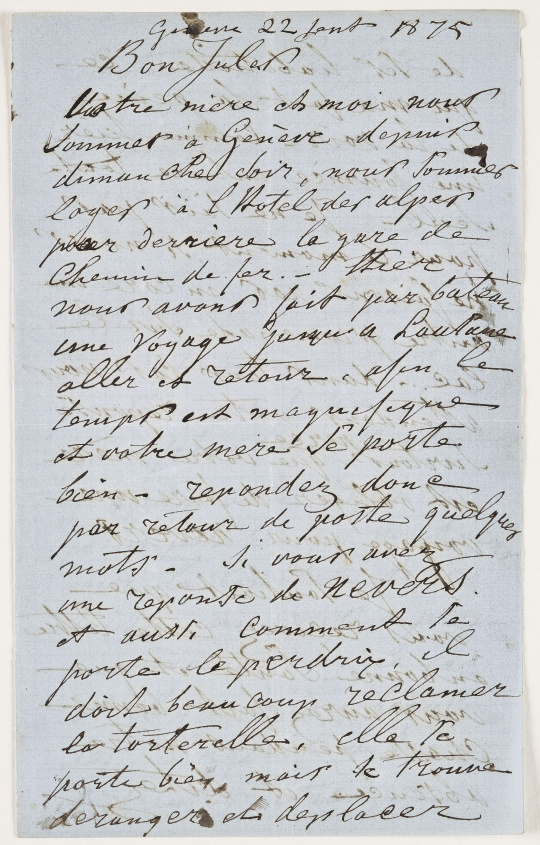 Geneve 22 sept 1875
Bon Jules
Votre mere et moi nous
sommes à Genève depuis
dimanche soir, nous sommes
loges à l'Hotel des alpes
derriere la gare de
Chemin de fer. - Hier
nous avons fait par bateau
une voyage jusqu'a Lausane
aller et retour, le
temps est magnifique
et votre mere se porte
bien - repondez donc
par retour de poste quelques
mots - si vous avez
une reponse de Nevers.
et aussi comment se
porte le perdrix, il
doit beaucoup réclamer
la torterelle, elle se
porte bien, mais se trouve
deranger et deplacer